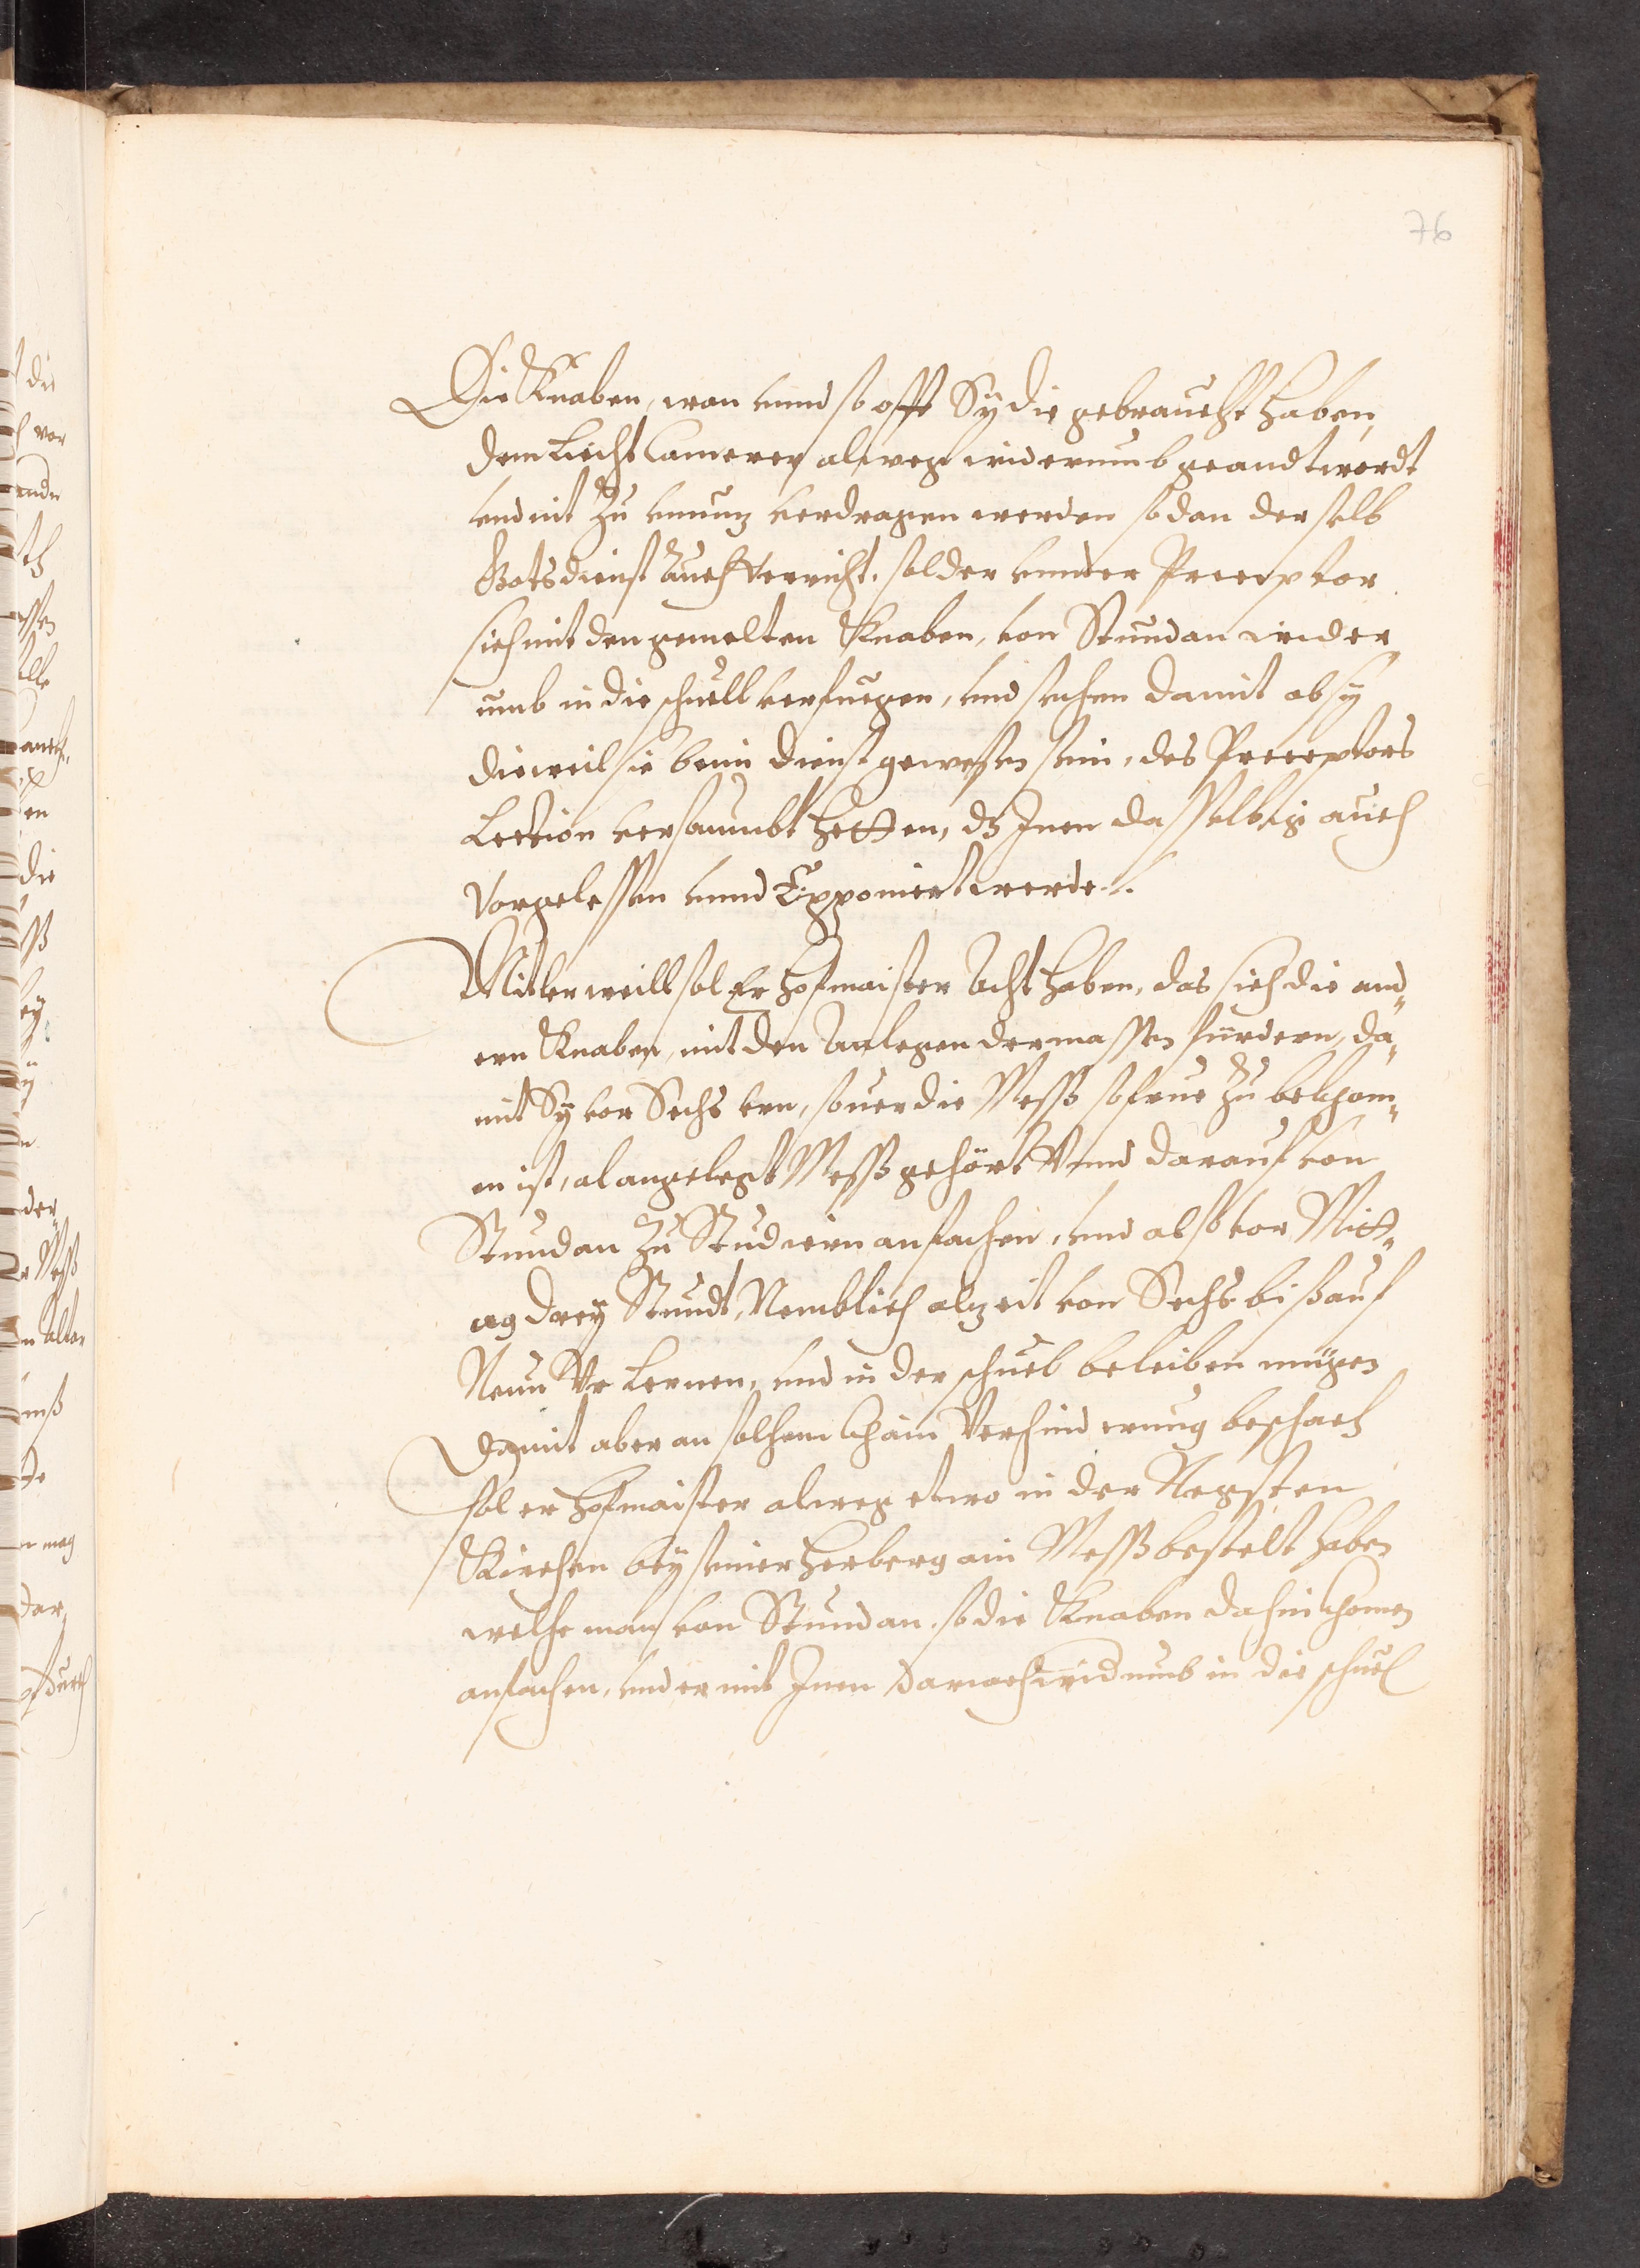 76
Die Knaben, wan vnnd so offt Sy die gebraucht haben,
dem Liecht Camerer alweg widerumb geandtwordt
vnd nit zu vnnuz verdragen werden so dan derselb
Gotsdienst auch Verricht, sol der vnnder Preceptor
sich mit den gemelten Knaben, von Stundan wider
umb in die schuell verfuegen, vnd sechen damit ob sy
dieweil sie beim dienst gewessen sein, des Preceptors
Lection versaumbt hetten, dz Inen dasselbig auch
Vorgelessen vnnd Exponiert werde.
Mitlerweill sol Er Hofmaister Acht haben, das sich die and„
ern Knaben, mit den Anlegen dermassen fürdern, da„
mit Sy vor Sechs vrn, souer die Mess so frue zu bekhom„
en ist, al angelegt Mess gehört Vnnd darauf von
Stundan zu Studiern anfachen, vnd also vor Mitt„
ag drey Stundt, Nemblich alzeit von Sechs bis auf
Neun Vr Lernen, vnd in der schuel beleiben mügen
Damit aber an solhem khain Verhinderung beschach
sol er Hofmaister alweg etwo in der Negsten
Kirchen bey seiner Herberg ain Mess bestelt haben
welhe man von Stundan, so die Knaben dahin khomen
anfachen, vnd er mit Inen darnach widumb in die schuel